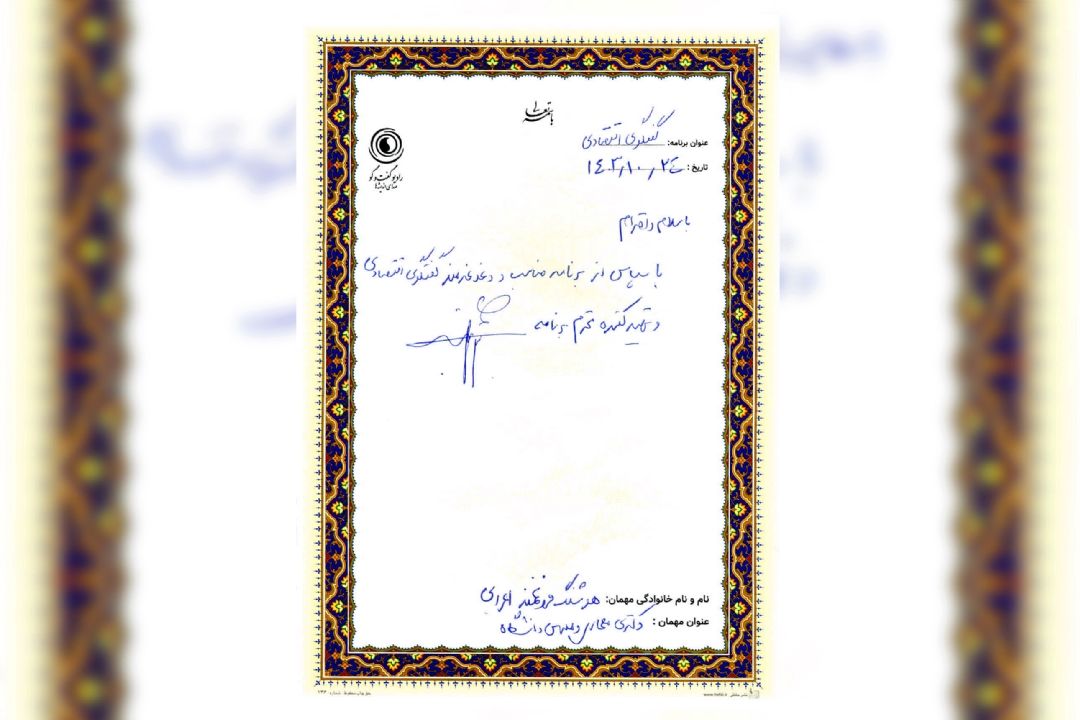 باسمه تعالی
عنوان برنامه: گفتگوی اقتصادی
تاریخ: ۱۴۰۳/۱۰/۲۶
رادیو گفت و گو
صدای اندیشه‌ها
با سلام و احترام
با سپاس از برنامه مناسب و دغدغه‌مند گفتگوی اقتصادی
و تهیه کننده محترم برنامه
نام و نام خانوادگی مهمان: هوشنگ فروغمند اعرابی
عنوان مهمان: دکتری معماری و مدرس دانشگاه